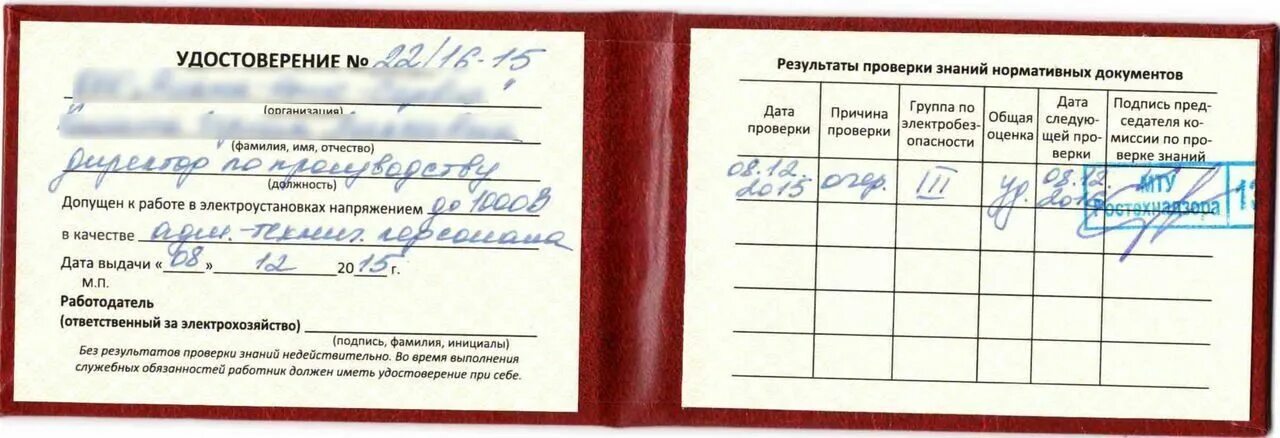 УДОСТОВЕРЕНИЕ № 22/16-15
(организация)
(фамилия, имя, отчество)
директор по производству
(должность)
Допущен к работе в электроустановках напряжением до 1000В
в качестве адм.-технич. персонала
Дата выдачи «08» 12 2015 г.
М.П.
Работодатель
(ответственный за электрохозяйство)
(подпись, фамилия, инициалы)
Без результатов проверки знаний недействительно. Во время выполнения
служебных обязанностей работник должен иметь удостоверение при себе.
Результаты проверки знаний нормативных документов
Дата проверки
Причина проверки
Группа по электробез-опасности
Общая оценка
Дата следую-щей про-верки
Подпись пред-седателя ко-миссии по про-верке знаний
08.12. 2015
очер.
III
уд.
08.12.
МТУ
Ростехнадзора